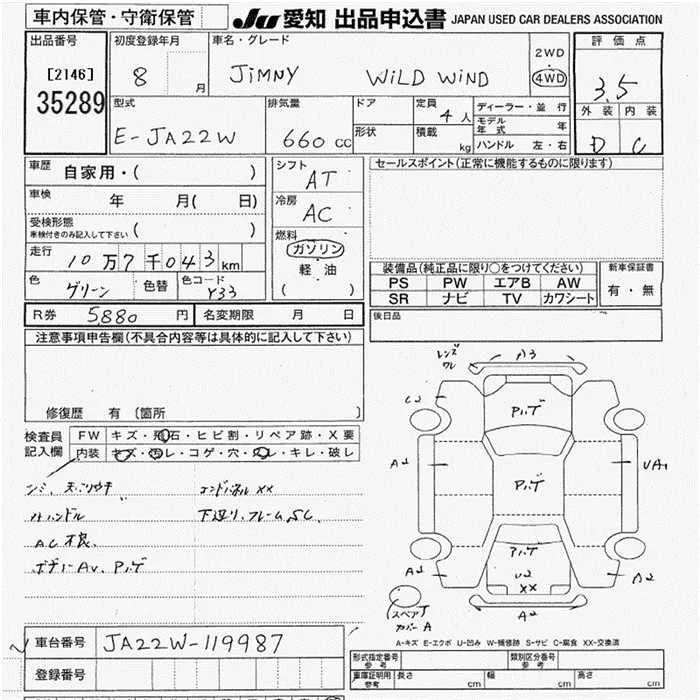 車内保管・守衛保管
JU 愛知 出品申込書 JAPAN USED CAR DEALERS ASSOCIATION
出品番号
[2146]
35289
初度登録年月
8 月
車名・グレード
JIMNY WILD WIND
2WD
4WD
評価点
3.5
外装 内装
D C
型式
E-JA22W
排気量
660 cc
ドア
形状
定員
4 人
積載
kg
ディーラー・並行
モデル年式 年
ハンドル 左・右
車歴 自家用・( )
車検 年 月( 日)
受検形態
車検付きのみ記入して下さい ( )
走行
10万7千043km
色
グリーン
色替
色コード
Y33
シフト
AT
冷房
AC
燃料
ガソリン
軽油
( )
セールスポイント(正常に機能するものに限ります)
装備品(純正品に限り○をつけてください)
PS PW エアB AW
SR ナビ TV カワシート
新車保証書
有・無
R券 5,880 円
名変期限 月 日
後日品
注意事項申告欄(不具合内容等は具体的に記入して下さい)
修復歴 有 〔箇所 〕
検査員
記入欄
FW キズ・飛石・ヒビ割・リペア跡・X要
内装 キズ・汚レ・コゲ・穴・スレ・キレ・破レ
エンドパネル XX
ハンドル
下廻り、フレームSC
AC不良
ボデーAV、P
レンズ
ワレ
A3
C2
A2
UA1
U2
XX
A2
A2
A2
スペアT
カバーA
A-キズ E-エクボ U-凹み W-補修跡 S-サビ C-腐食 XX-交換済
車台番号 JA22W-119987
登録番号
形式指定番号
参考
類別区分番号
参考
車庫証明用
参考
長さ cm
幅 cm
高さ cm